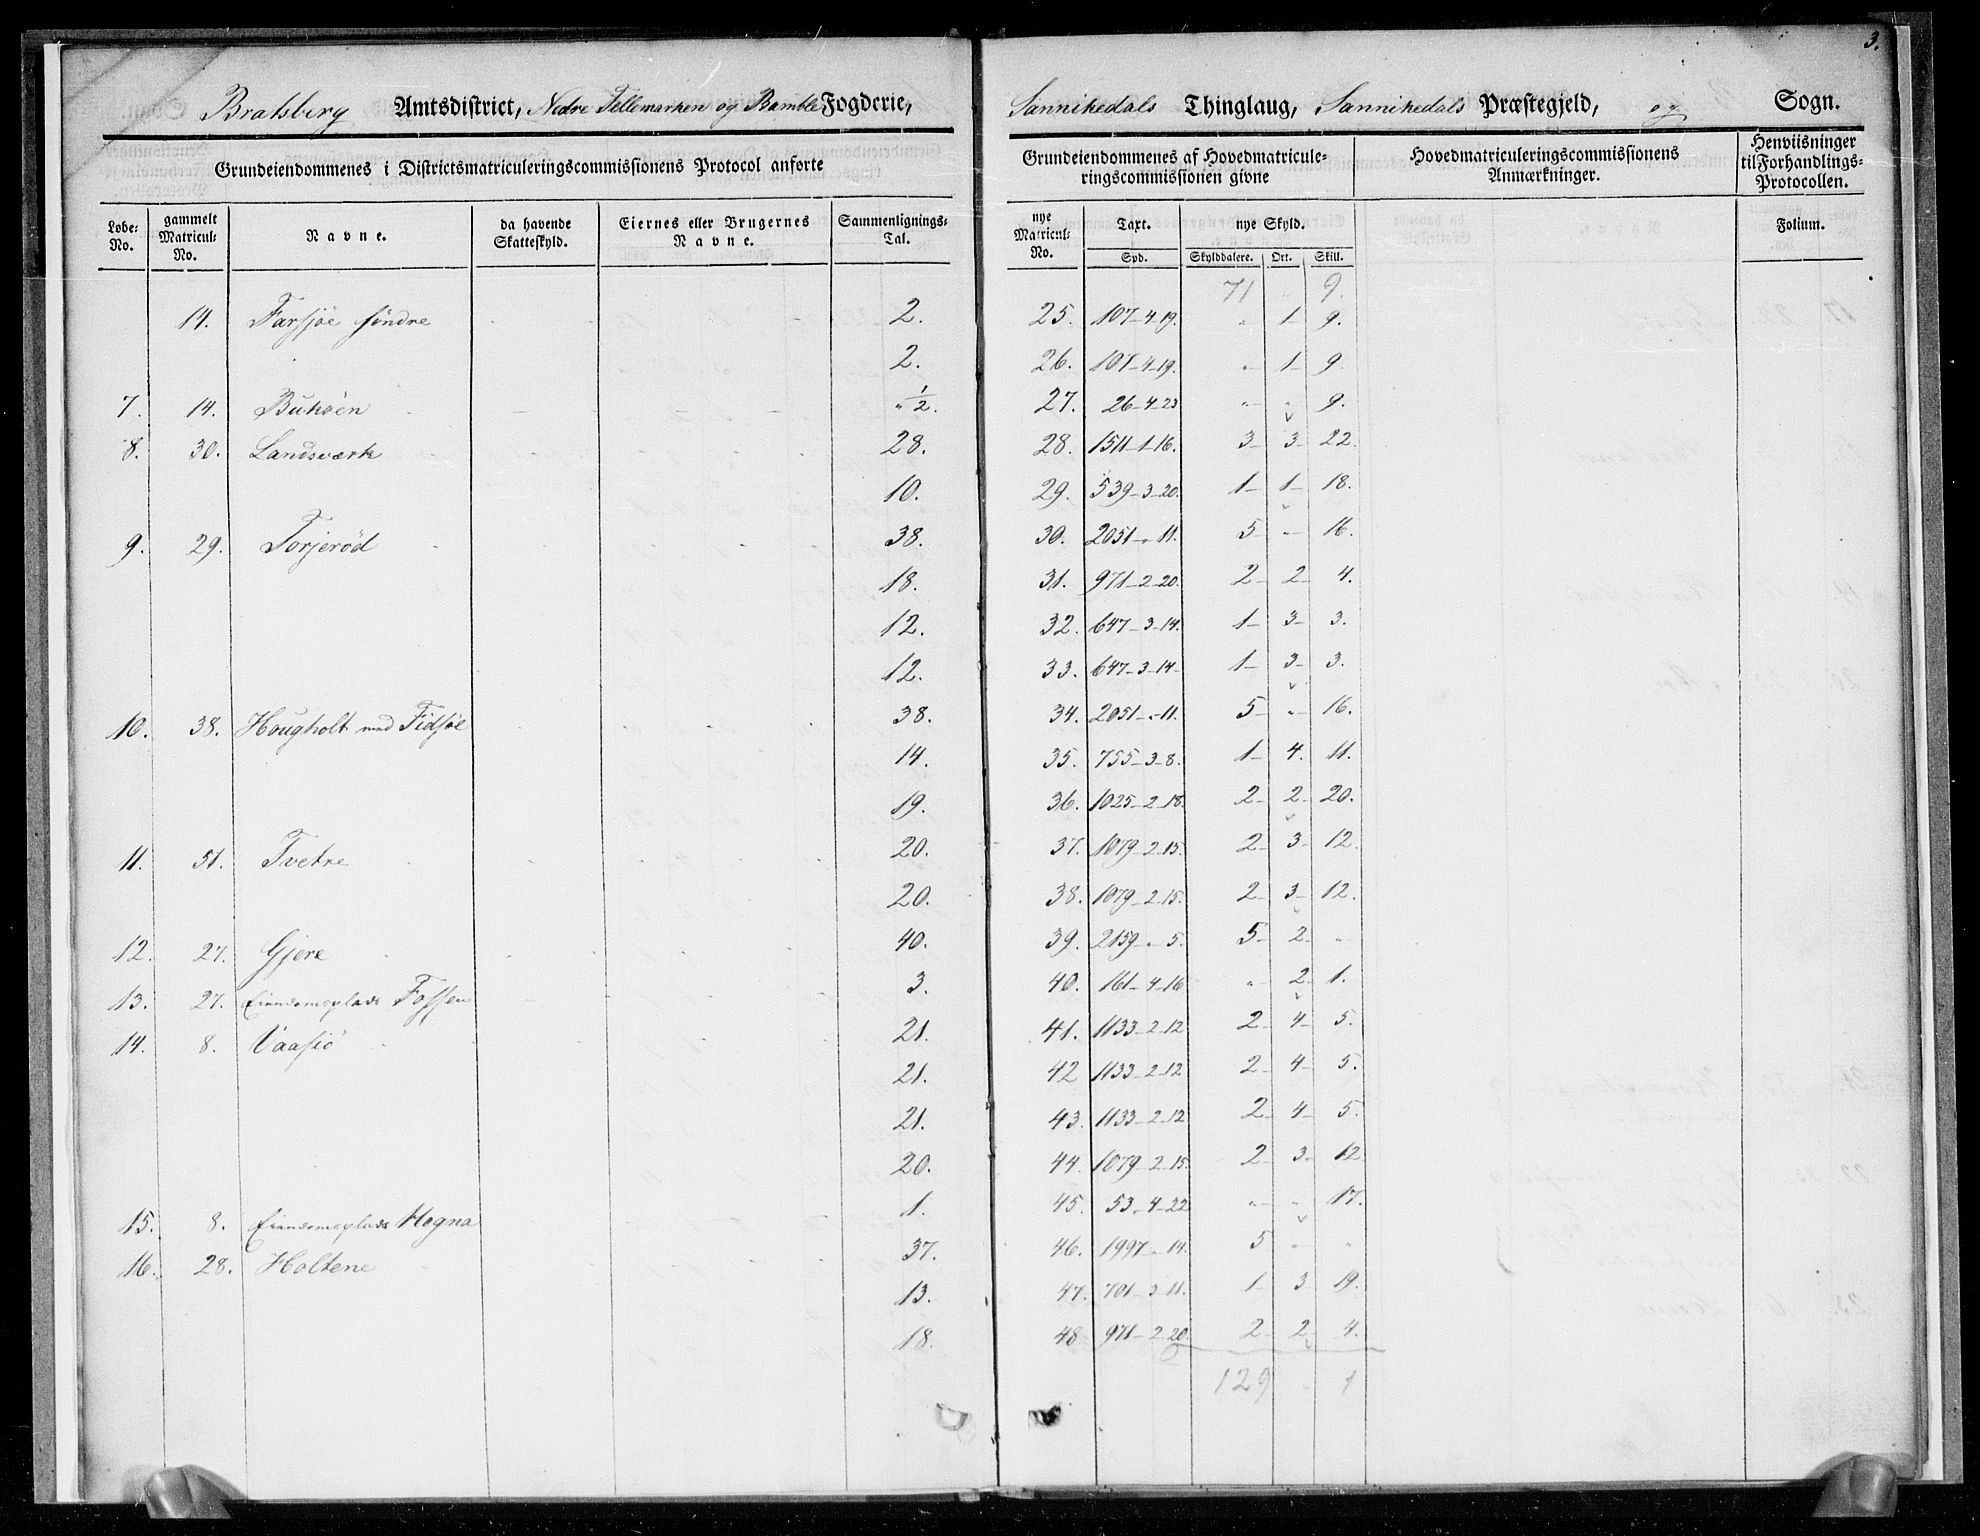 3.
Bratsberg Amtsdistrict, Nedre Tellemarken og Bamble Fogderie, Sannikedals Thinglaug, Sannikedals Præstegjeld, og Sogn.
Grundeiendommenes i Districtsmatriculeringscommissionens Protocol anforte
Grundeiendommenes af Hovedmatricule-
ringscommissionen givne
Hovedmatriculeringscommissionens
Anmærkninger.
Henviisninger
til Forhandlings-
Protocollen.
Løbe-
No.
gammelt
Matricul-
No.
Navne.
da havende
Skatteskyld.
Eiernes eller Brugernes
Navne.
Sammenlignings-
Tal.
nye
Matricul-
No.
Taxt.
Spd.
nye Skyld.
Skylddalere. Ort. Skill.
Folium.
71 " 9.
14. Farsjøe søndre 2. 25. 107-4-19. " 1- 9.
2. 26. 107-4-19. " 1- 9.
7. 14. Buhøen " 1/2. 27. 26-4-23 " " 9.
8. 30. Landsværk 28. 28. 1511-1-16. 3- 3- 22.
10. 29. 539-3-20. 1- 1- 18.
9. 29. Torjerød 38. 30. 2051-"-11. 5- " 16.
18. 31. 971-2-20. 2- 2- 4.
12. 32. 647-3-14. 1- 3- 3.
12. 33. 647-3-14- 1- 3- 3.
10. 38. Hougholt med Fidsøe 38. 34. 2051-"-11. 5- " 16.
14. 35. 755-3-8. 1- 4. 11.
19. 36. 1025-2-18. 2- 2- 20.
11. 51. Tvetre 20. 37. 1079-2-15. 2- 3- 12.
20. 38. 1079-2-15. 2- 3- 12.
12. 27. Gjere 40. 39. 2159-"-5. 5- 2- "
13. 27. Eiendomsplads Fossen 3. 40. 161-4-16 " 2- 1.
14. 8. Vaasiö 21. 41. 1133-2-12 2- 4- 5.
21. 42 1133-2-12 2- 4- 5.
21. 43. 1133-2-12 2- 4- 5.
20. 44. 1079-2-15. 2- 3- 12.
15. 8. Eiendomsplads Hegna 1. 45. 53-4-22 " " 17.
16. 28. Holtene 37. 46. 1997-"-14. 5 " "
13. 47. 701-3-11. 1- 3 19.
18. 48 971-2-20. 2- 2- 4.
129 " 1